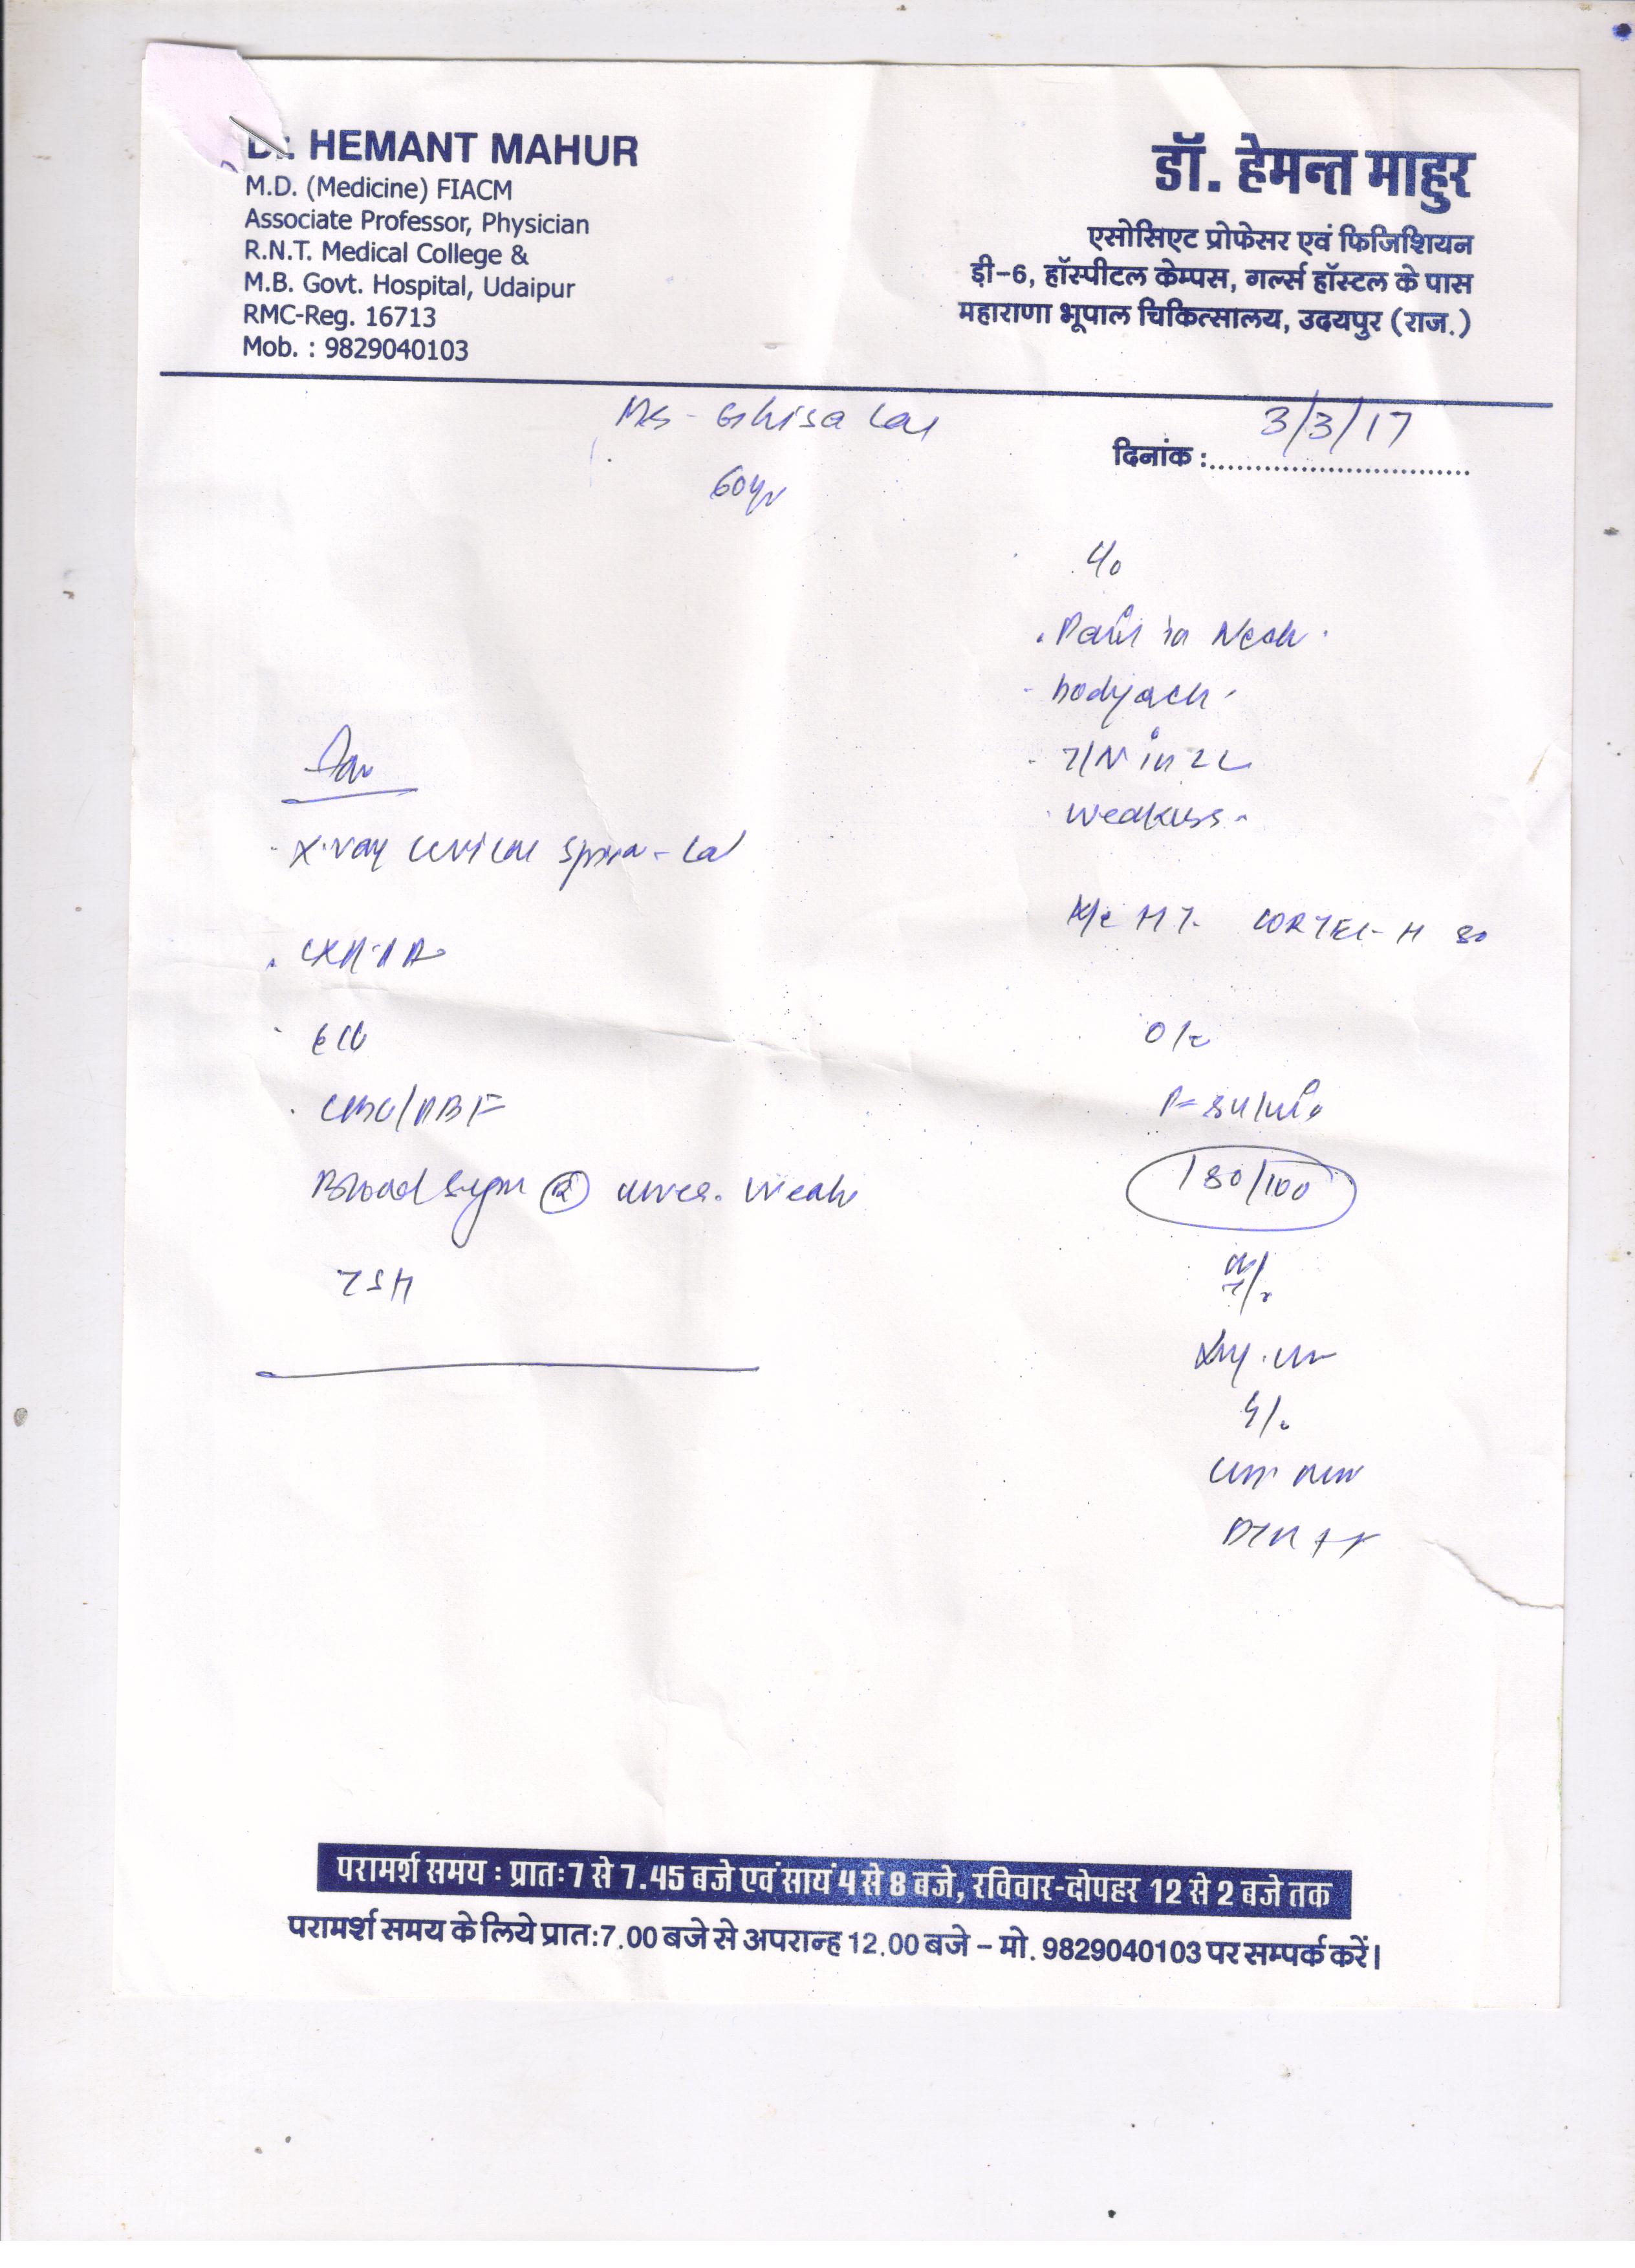 Dr. HEMANT MAHUR
M.D. (Medicine) FIACM
Associate Professor, Physician
R.N.T. Medical College &
M.B. Govt. Hospital, Udaipur
RMC-Reg. 16713
Mob. : 9829040103
डॉ. हेमन्त माहुर
एसोसिएट प्रोफेसर एवं फिजिशियन
ड़ी-6, हॉस्पीटल केम्पस, गर्ल्स हॉस्टल के पास
महाराणा भूपाल चिकित्सालय, उदयपुर (राज.)
Ghisa Lal
60yr
दिनांक : 3/3/17
C/o
Pain in Neck
bodyach
T/N in LL
Weakness
K/C HT. H 80
O/E
P= 84/min
180/100
X-ray cervical spine - Lat
CXR-PA
ECG
CBC/PBF
Blood Sugar urea
TSH
परामर्श समय : प्रातः 7 से 7.45 बजे एवं सायं 4 से 8 बजे, रविवार-दोपहर 12 से 2 बजे तक
परामर्श समय के लिये प्रातः 7.00 बजे से अपरान्ह 12.00 बजे – मो. 9829040103 पर सम्पर्क करें।